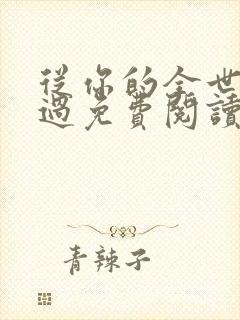 從你的全世
過免費閱讀
青辣子